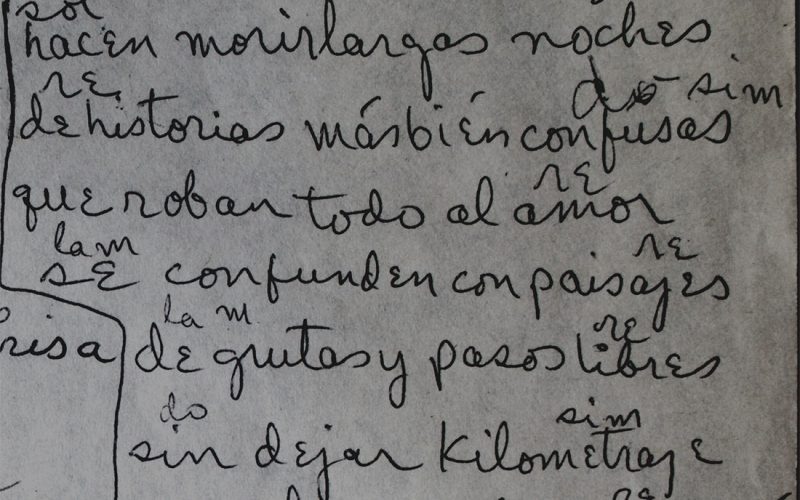 sol
hacen morir largas noches
re do sim
de historias más bién confusas
re
que roban todo al amor
lam re
se confunden con paisajes
la m re
risa de grutas y pasos libres
do sim
sin dejar kilometraje